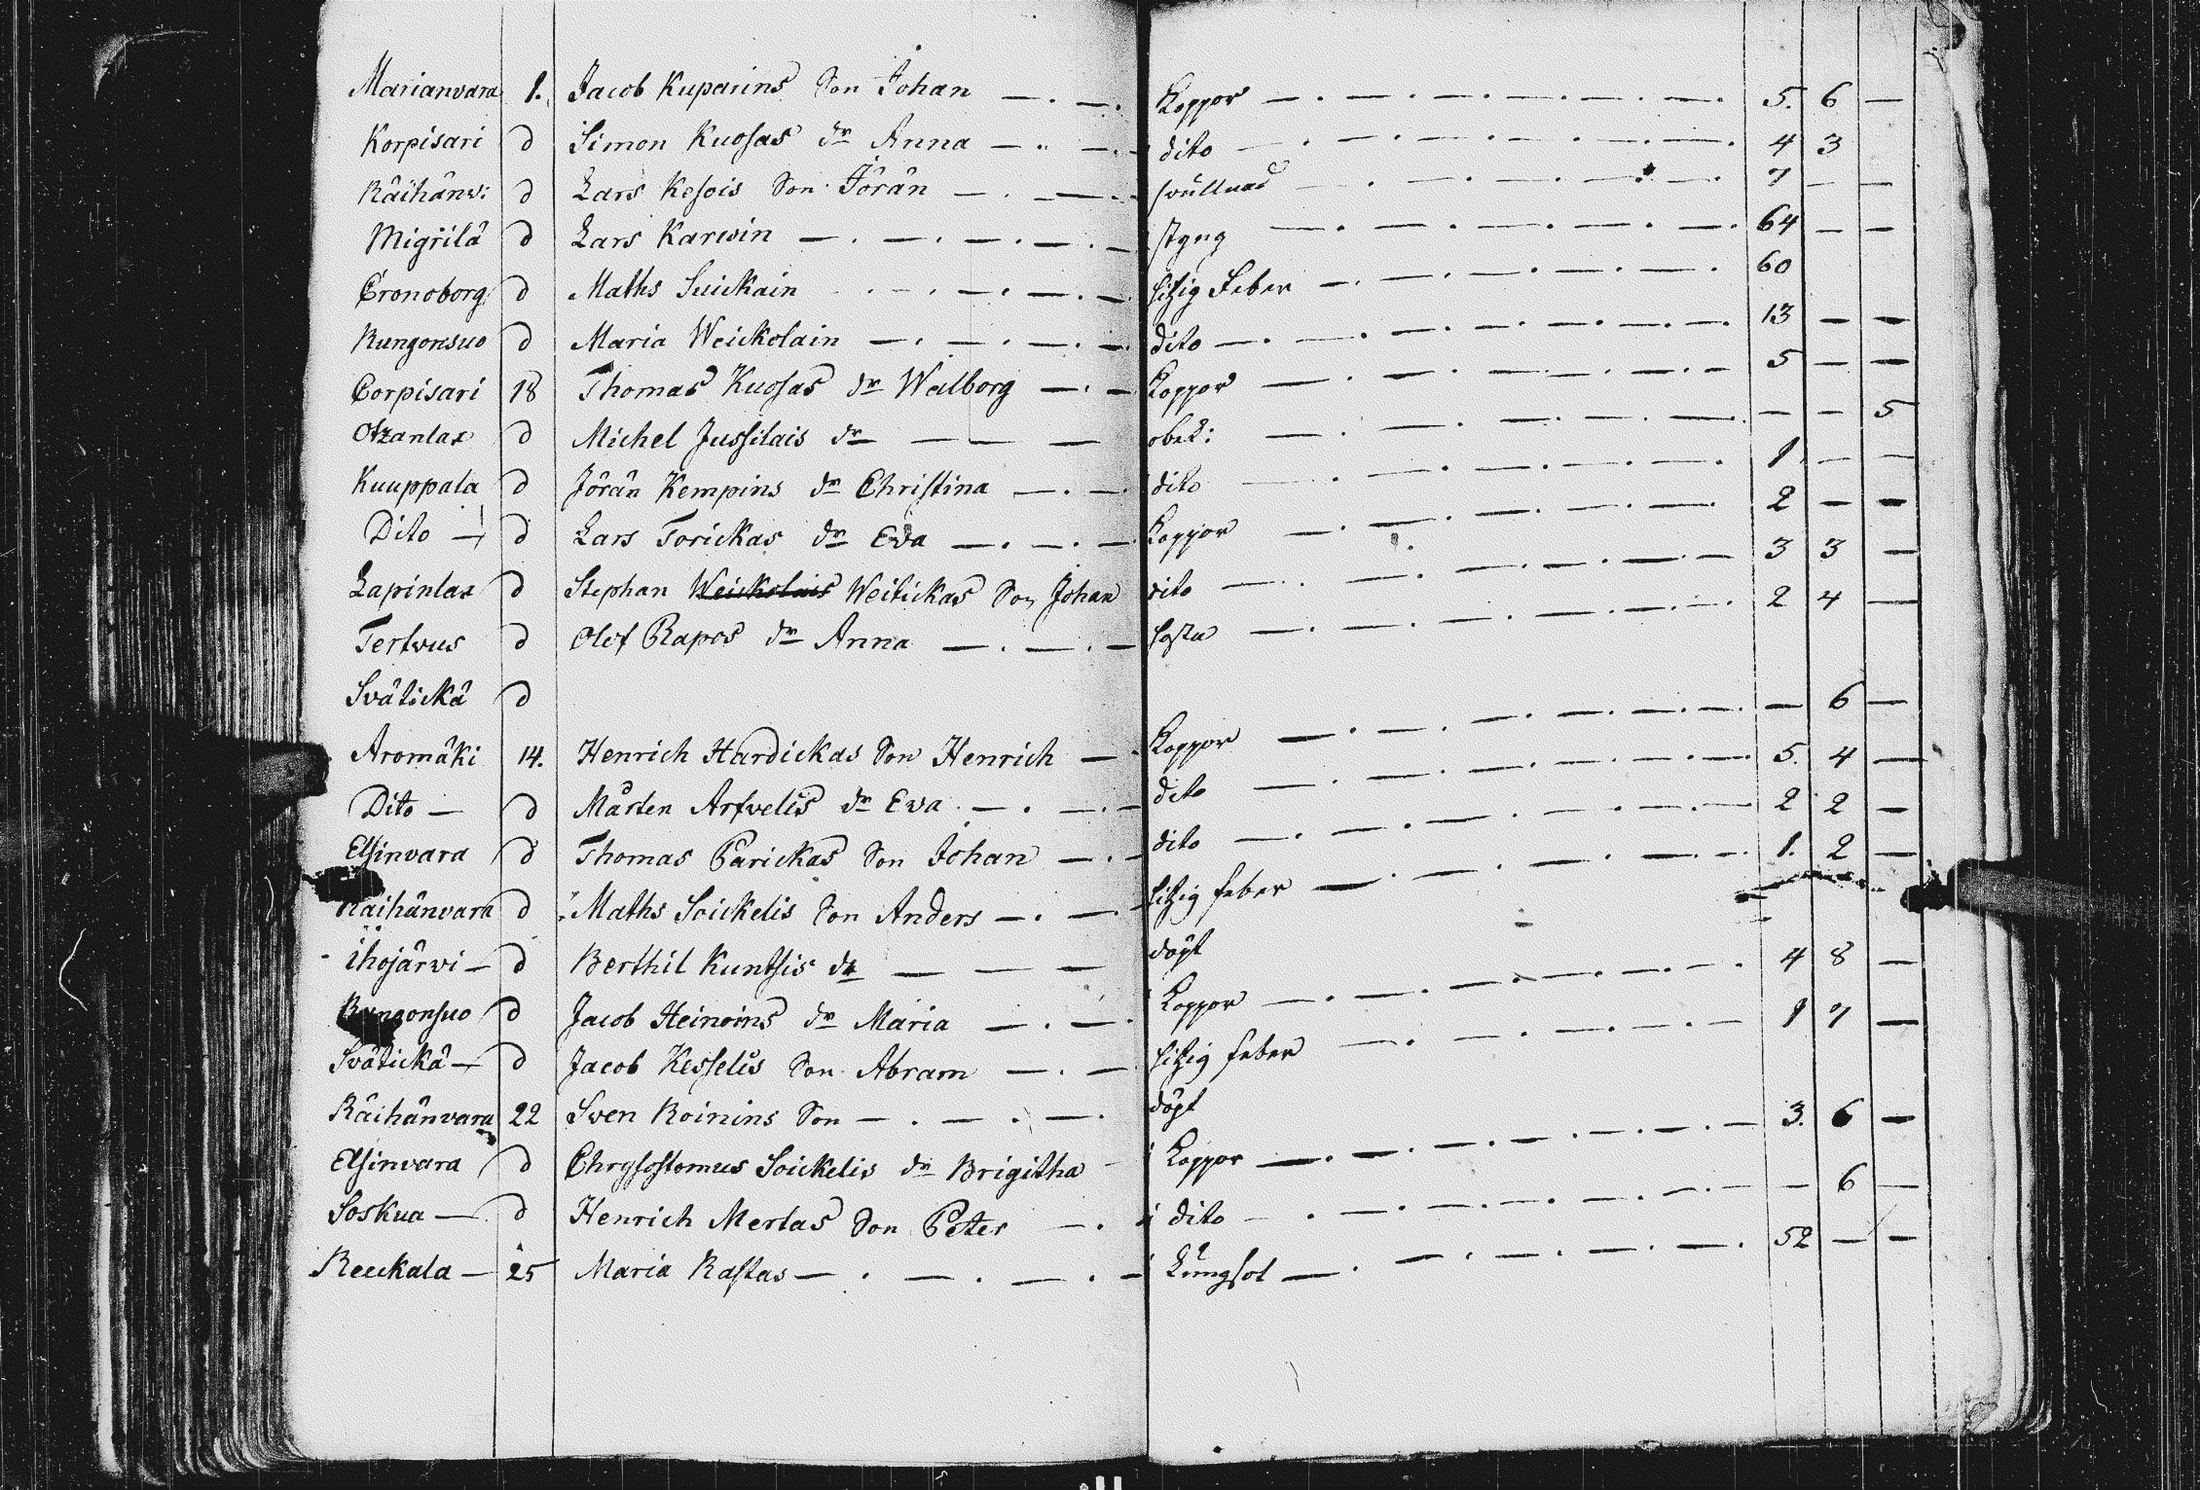 Marianvara 1. Jacob Kuparins Son Johan — . — . Koppor — . — . — . — 5. 6 —
Korpisari d Simon Kuosas dr Anna — . — . dito — . — . — . — 4 3
Räihänw: d Lars Kesois Son Jöran — . — svullnad — . — . — . — 7 — —
Migrilä d Lars Karwin — . — . — . — styng — . — . — . — 64 — —
Cronoborg d Maths Suickain — . — . — hitzig Feber — . — . — . — 60
Kungonsuo d Maria Weickolain — . — . — dito — . — . — . — 13 — —
Corpisari 18 Thomas Kuosas dr Walborg — . — Koppor — . — . — . — 5 — —
Otzanlax d Michel Jussilais dr — — — obek: — . — . — . — — — 5
Kuuppala d Jöran Kempins dr Christina — . — dito — . — . — . — 1 — —
Dito — d Lars Torickas dr Ewa — . — . — Koppor — . — . — . — 2 — —
Lapinlax d Stephan Weickolais Weitickas Son Johan dito — . — . — . — 3 3 —
Tertwus d Olof Rapos dr Anna — . — . — hosta — . — . — . — 2 4 —
Svätickä d
Aromäki 14. Henrich Hardickas Son Henrich — Koppor — . — . — . — — 6 —
Dito — d Mårten Artwelis dr Ewa — . — . — dito — . — . — . — 5. 4 —
Elsinvara d Thomas Parickas Son Johan — . — dito — . — . — . — 2 2 —
Räihänvara d Maths Soickelis Son Anders — . — hitzig feber — . — . — . — 1. 2 —
Ihojärwi — d Berthil Kuntsis dr — — — döpt
Kungonsuo d Jacob Heinoins dr Maria — . — . Koppor — . — . — . — 4 8 —
Svätickä — d Jacob Kesselis Son Abram — . — hitzig feber — . — . — . — 1 7 —
Räihänvara 22 Sven Roinins Son — . — . — döpt
Elsinvara d Chrysostomus Soickelis dr Brigitha — Koppor — . — . — . — 3. 6 —
Soskua — d Henrich Mertas Son Peter — . dito — . — . — . — — 6 —
Reuckala — 25 Maria Rastas — . — . — . — Lungsot — . — . — . — 52 — —